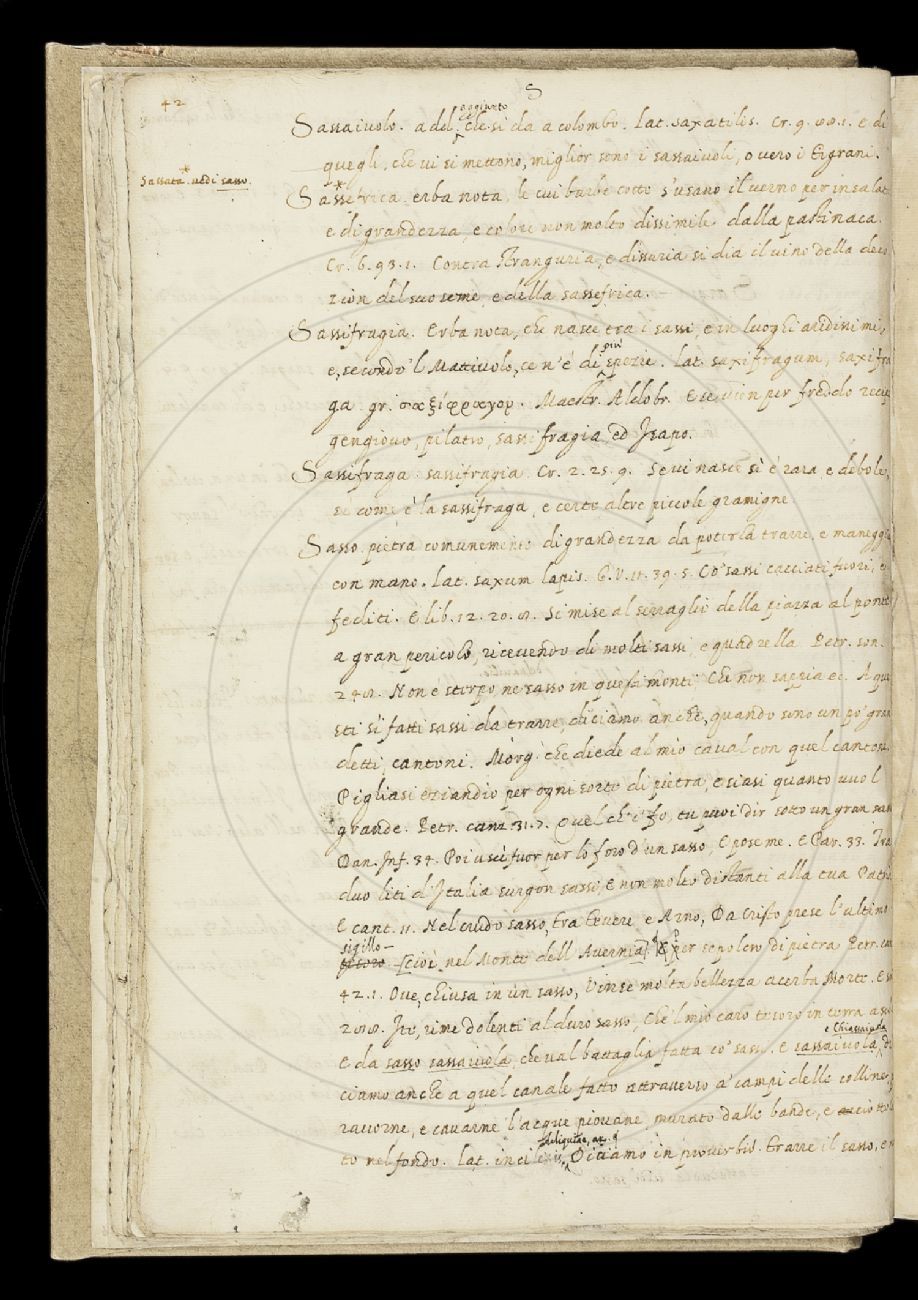 42
S
aggiunto
Sassaiuolo. add. che si da a colombo. Lat. saxatilis. Cr. 9. 88.1. e di
quegli, che vi si mettono, miglior sono i sassaiuoli, o vero i tigrani.
Sassata* vedi sasso.
Sassefrica. erba nota, le cui barbe cotte s'usano il verno per insalat
e di grandezza, e colore non molto dissimile dalla pastinaca.
Cr. 6. 93. 1. Contra stranguria, e dissuria si dia il vino della deco
zion del suo seme, e della sassefrica.
Sassifragia. Erba nota, che nasce tra i sassi, e in luoghi aridissimi,
più
e, secondo 'l Mattiuolo, ce n'è di spezie. Lat. saxifragum, saxifra
ga. gr. σαξίφραγον. Maestr. Aldobr. E se vien per freddo
gengiovo, pilatro, sassifragia ed Isapo.
Sassifraga. sassifragia. Cr. 2. 25. 9. Se vi nasce sì è rara, e debole,
se come è la sassifraga, e certe altre piccole gramigne.
Sasso. pietra comunemente di grandezza da poterla trarre, e maneggia
con mano. Lat. saxum lapis. G.V. 11. 39. 5. Co' sassi cacciati fuori, e
fediti. E lib. 12. 20. 8. Si mise al serraglio della piazza al ponte
a gran pericolo, ricevendo di molti sassi, e quadrella. Petr. son.
248. Non è sterpo, ne sasso in questi monti. Chi non sappia ec. A que
sti sì fatti sassi da trarre, diciamo anche, quando sono un po' gran
detti, cantoni. Morg. che diede al mio caval con quel canton.
Pigliasi eziandio per ogni sorte di pietra, e siasi quanto vuol
grande. Petr. canz. 31.7. Quel ch'i' fo, tu puoi dir sotto un gran sas
Dan. Inf. 34. Poi uscì fuor per lo foro d'un sasso, E pose me. E Par. 33. Tra
duo liti d'Italia surgon sassi, E non molto distanti alla tua Patri
E cant. 11. Nel crudo sasso, tra Tevere e Arno, Da Cristo prese l'ultimo
sigillo
[cioè nel Monte dell Avernia]. per sepolcro di pietra Petr. can
42. 1. Ove, chiusa in un sasso, Vinse molta bellezza acerba Morte. E
288. Ite, rime dolenti al duro sasso, Che 'l mio caro tesoro in terra
e Chiassaiuola
E da sasso sassaiuola, che val battaglia fatta co' sassi. E sassaiuola, di
ciamo anche a quel canale fatto attraverso a' campi delle colline
raccorne, e cavarne l'acque piovane, murato dalle bande, e acciotto
to nel fondo. Lat. Diciamo in proverbio. Trarre il sasso, e